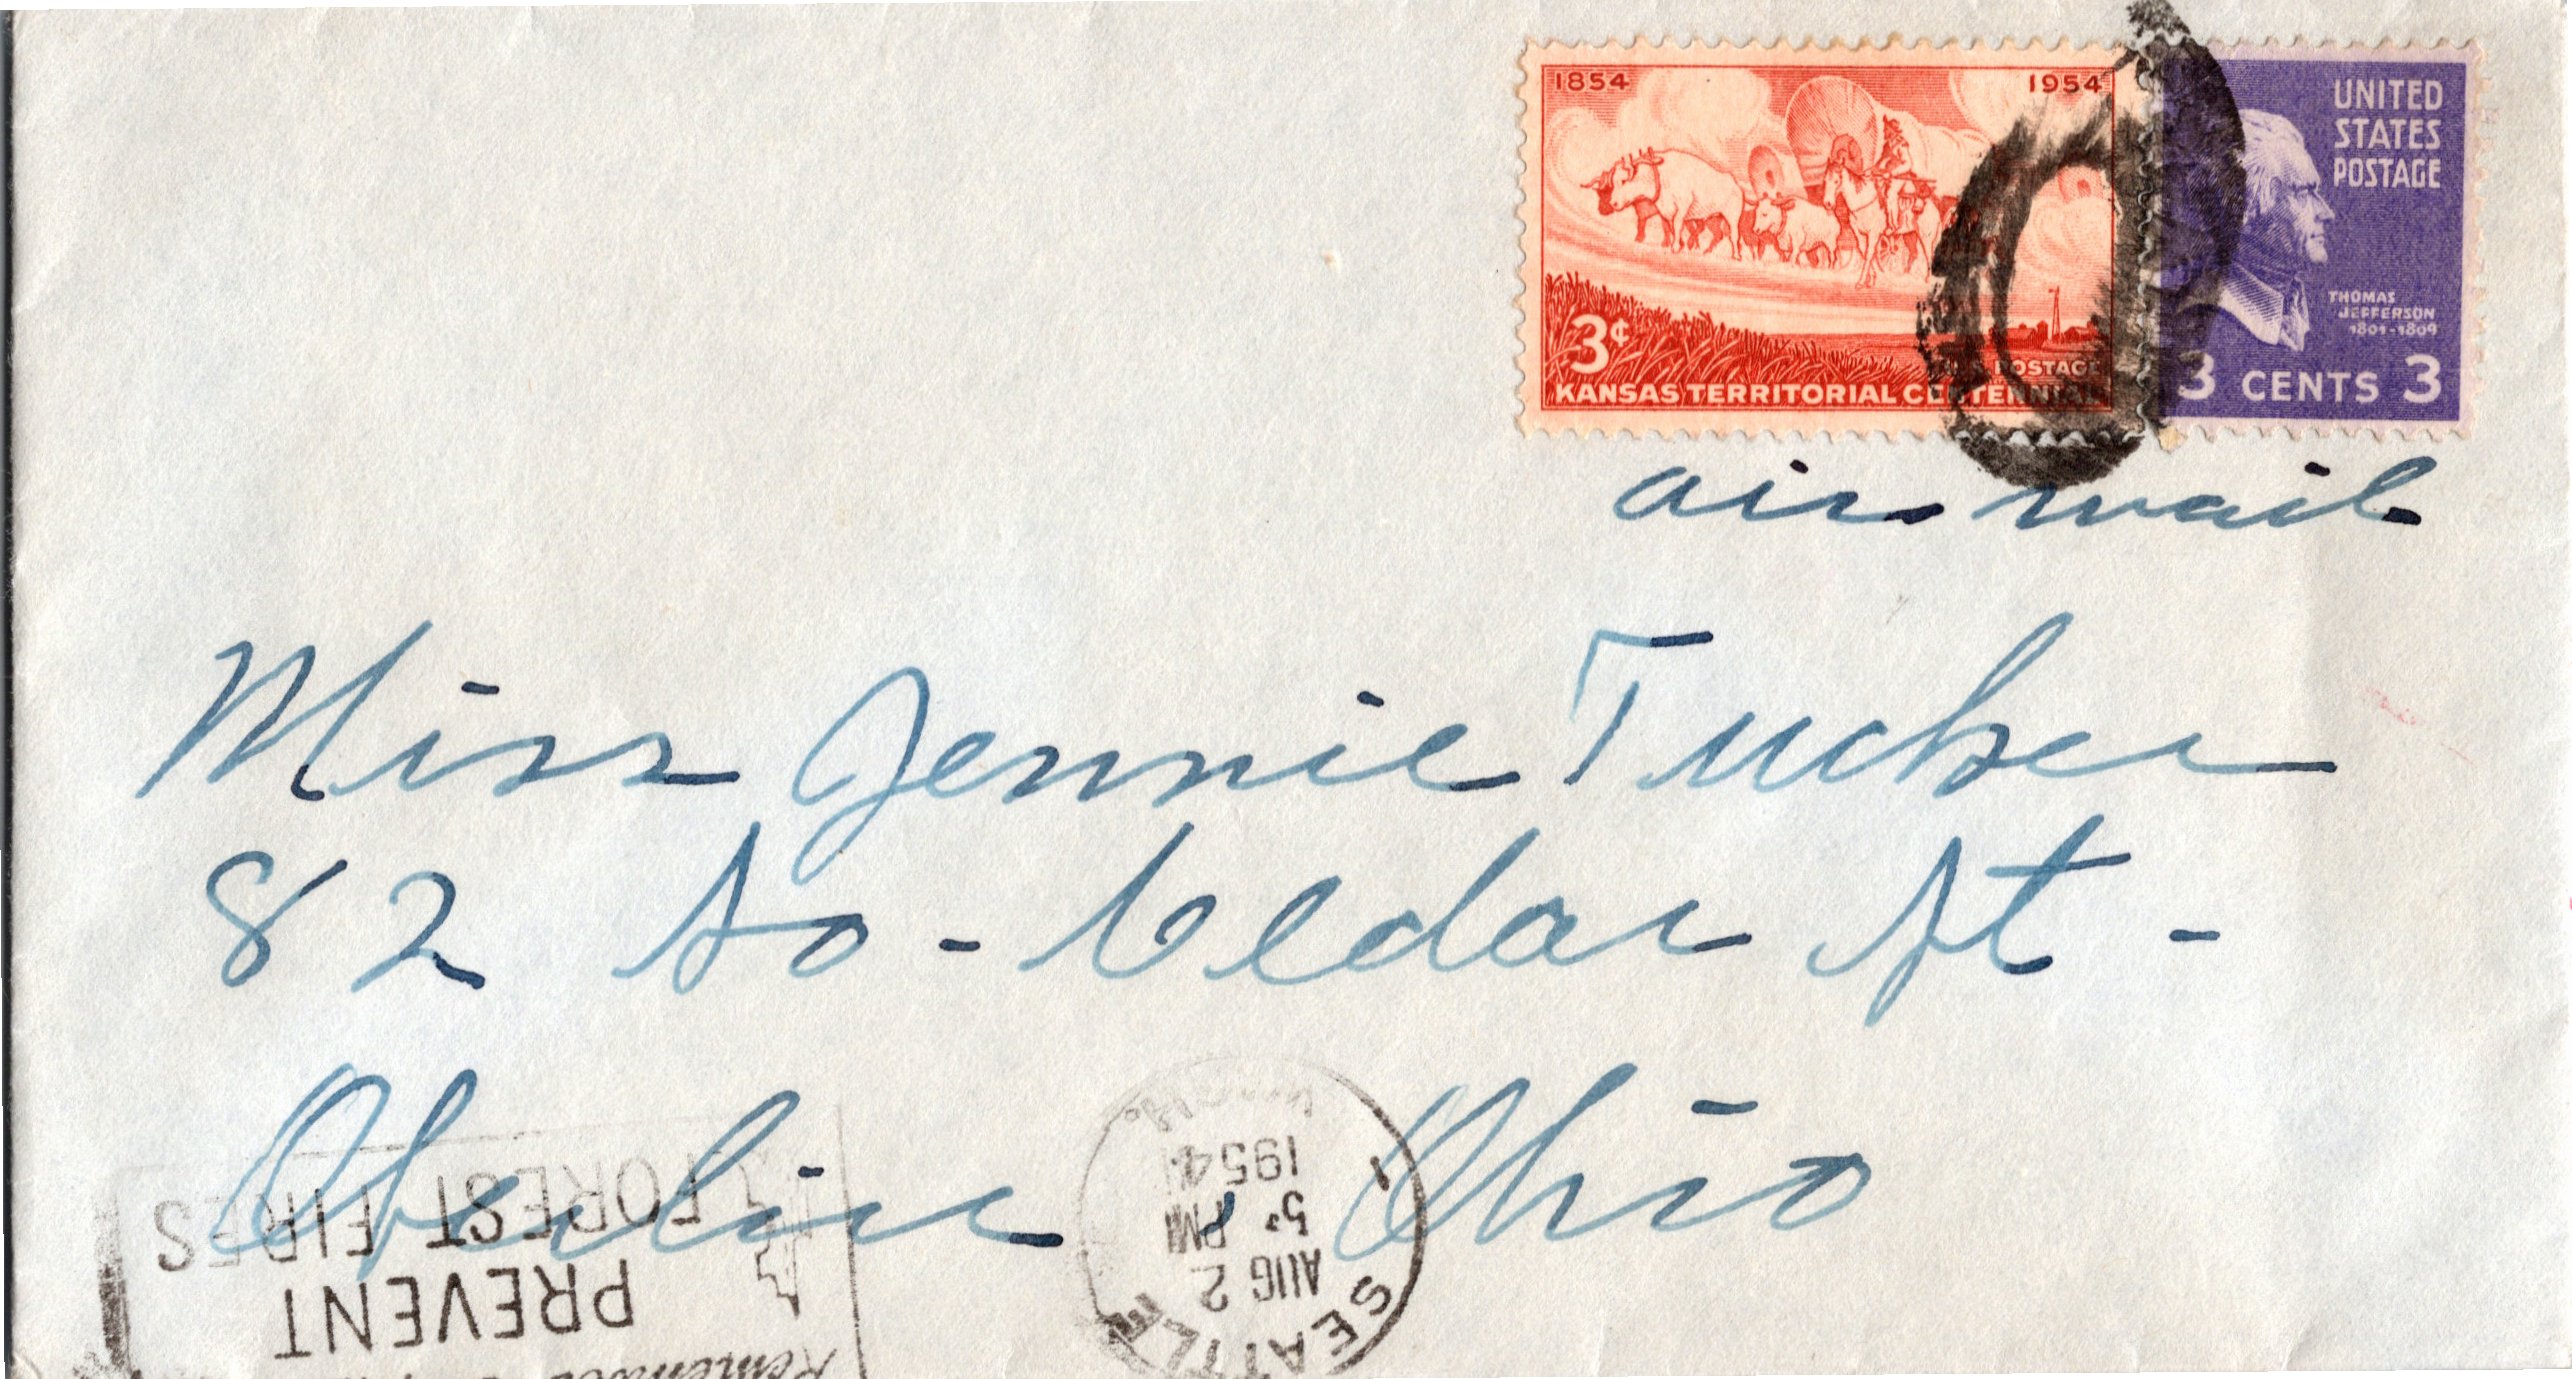 1854 1954
3¢
POSTAGE
KANSAS TERRITORIAL CENTENNIAL
UNITED
STATES
POSTAGE
THOMAS
JEFFERSON
1801-1809
3 CENTS 3
air mail
Miss Jennie Tucker
82 So - Cedar St -
Oberlin Ohio
SEATTLE
AUG 2
5 PM
1954
1
PREVENT
FOREST FIRES